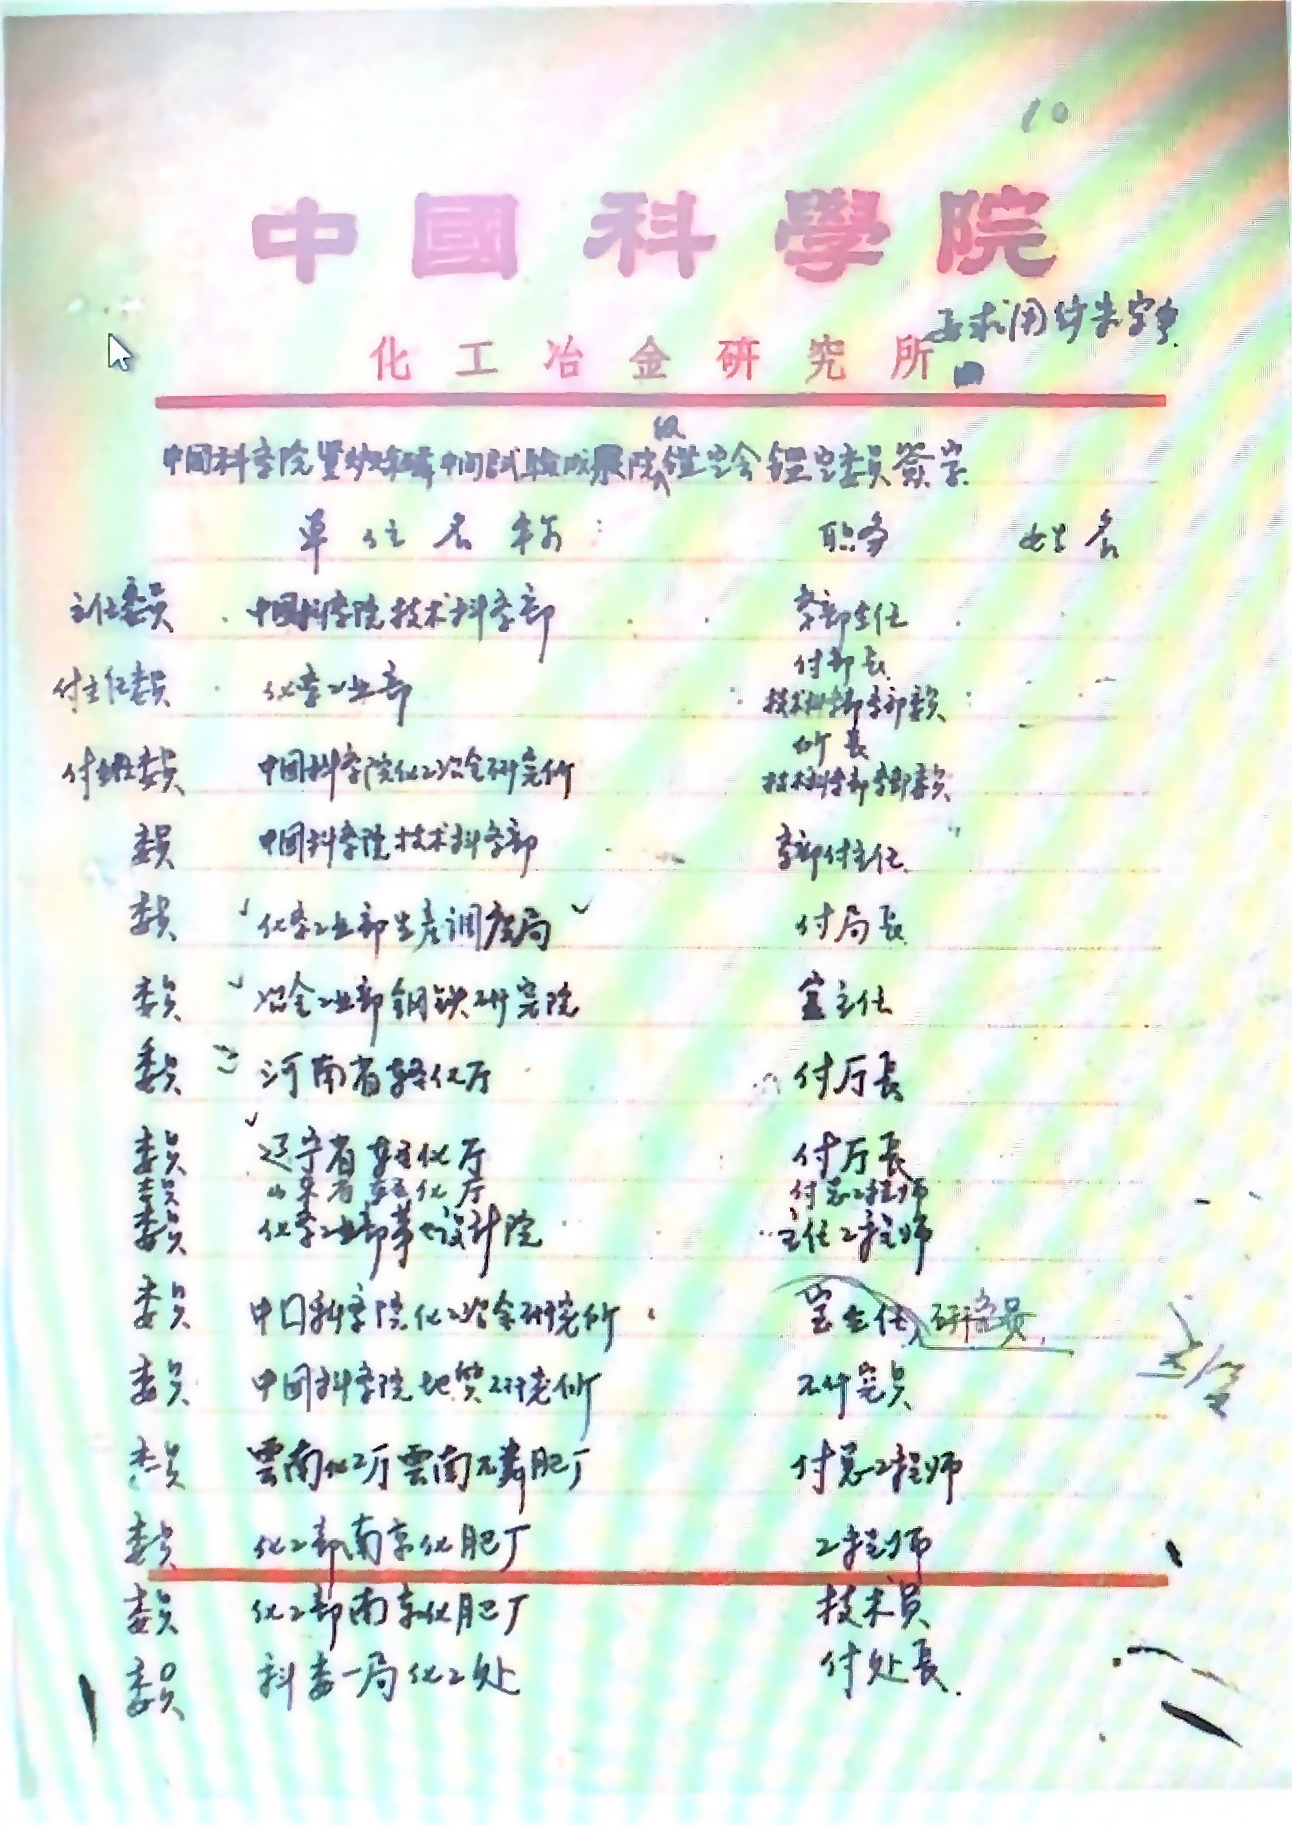 10
中國科學院
要求用钢笔字
化工冶金研究所
中国科学院 中间试验成果院级鉴定会鉴定委员签字
单位名称: 职务 姓名
主任委员 中国科学院技术科学部 学部主任
付部长
付主任委员 化学工业部 技术科学部学部委员
所長
付主任委员 中国科学院化工冶金研究所 技术科学部学部委员
委员 中国科学院技术科学部 学部付主任
委员 化学工业部生产调度局 付局長
委员 冶金工业部钢铁研究院 室主任
委员 河南省轻化厅 付厅長
委员 辽宁省轻化厅 付厅長
委员 山东省轻化厅 付总工程师
委员 化学工业部第七设计院 主任工程师
委员 中囗科学院化工冶金研究所 室主任、研究员
委员 中国科学院地质研究所 研究员
委员 雲南化工厅雲南磷肥厂 付总工程师
委员 化工部南京化肥厂 工程师
委员 化工部南京化肥厂 技术员
委员 科委一局化工处 付处長